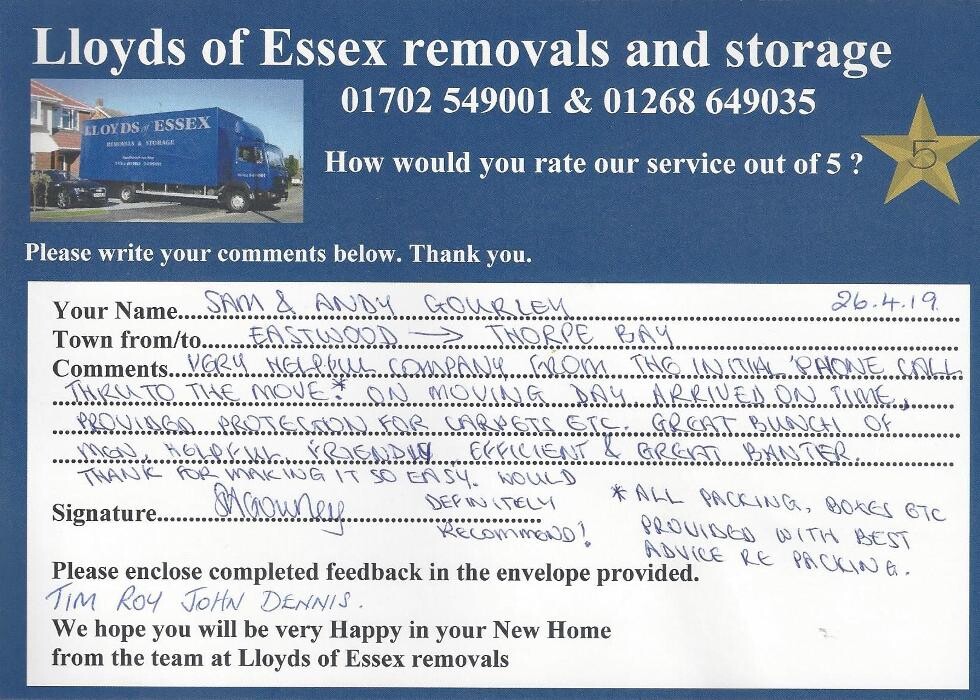 Lloyds of Essex removals and storage
01702 549001 & 01268 649035
LLOYDS of ESSEX
REMOVALS & STORAGE
How would you rate our service out of 5 ?
5
Please write your comments below. Thank you.
Your Name SAM & ANDY GOURLEY 26.4.19.
Town from/to EASTWOOD → THORPE BAY
Comments VERY HELPFUL COMPANY FROM THE INITIAL 'PHONE CALL
THRU TO THE MOVE.* ON MOVING DAY ARRIVED ON TIME,
PROVIDED PROTECTION FOR CARPETS ETC. GREAT BUNCH OF
MEN, HELPFUL FRIENDLY EFFICIENT & GREAT BANTER.
THANK FOR MAKING IT SO EASY. WOULD
DEFINITELY
RECOMMEND!
* ALL PACKING, BOXES ETC
PROVIDED WITH BEST
ADVICE RE PACKING.
Signature SAGourley
Please enclose completed feedback in the envelope provided.
TIM ROY JOHN DENNIS.
We hope you will be very Happy in your New Home
from the team at Lloyds of Essex removals